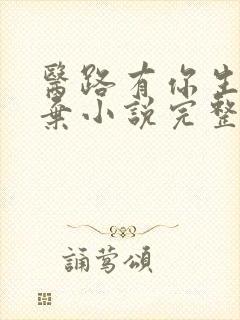 醫路有你生
棄小說完整
誦鶯頌